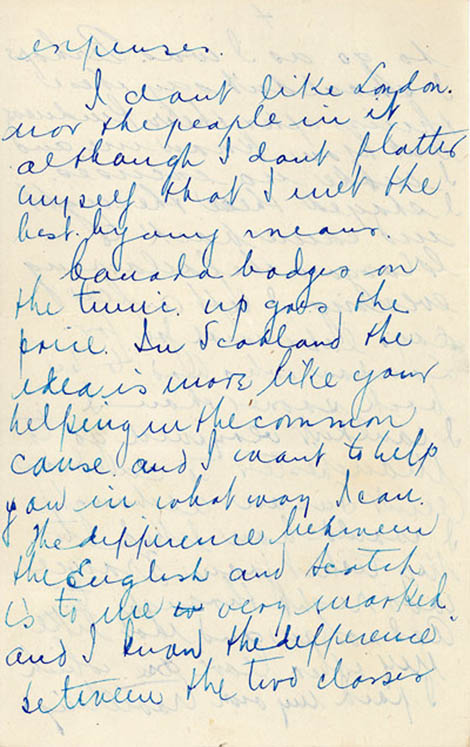 expenses.
I dont like London.
nor the people in it
although I dont flatter
myself that I met the
best. by any means.
Canada badges on
the tunic. up goes the
price. In Scotland the
idea is more like your
helping in the common
cause. and I want to help
you in what way I can.
The difference between
the English and Scotch
is to me very marked.
and I know the difference
between the two classes